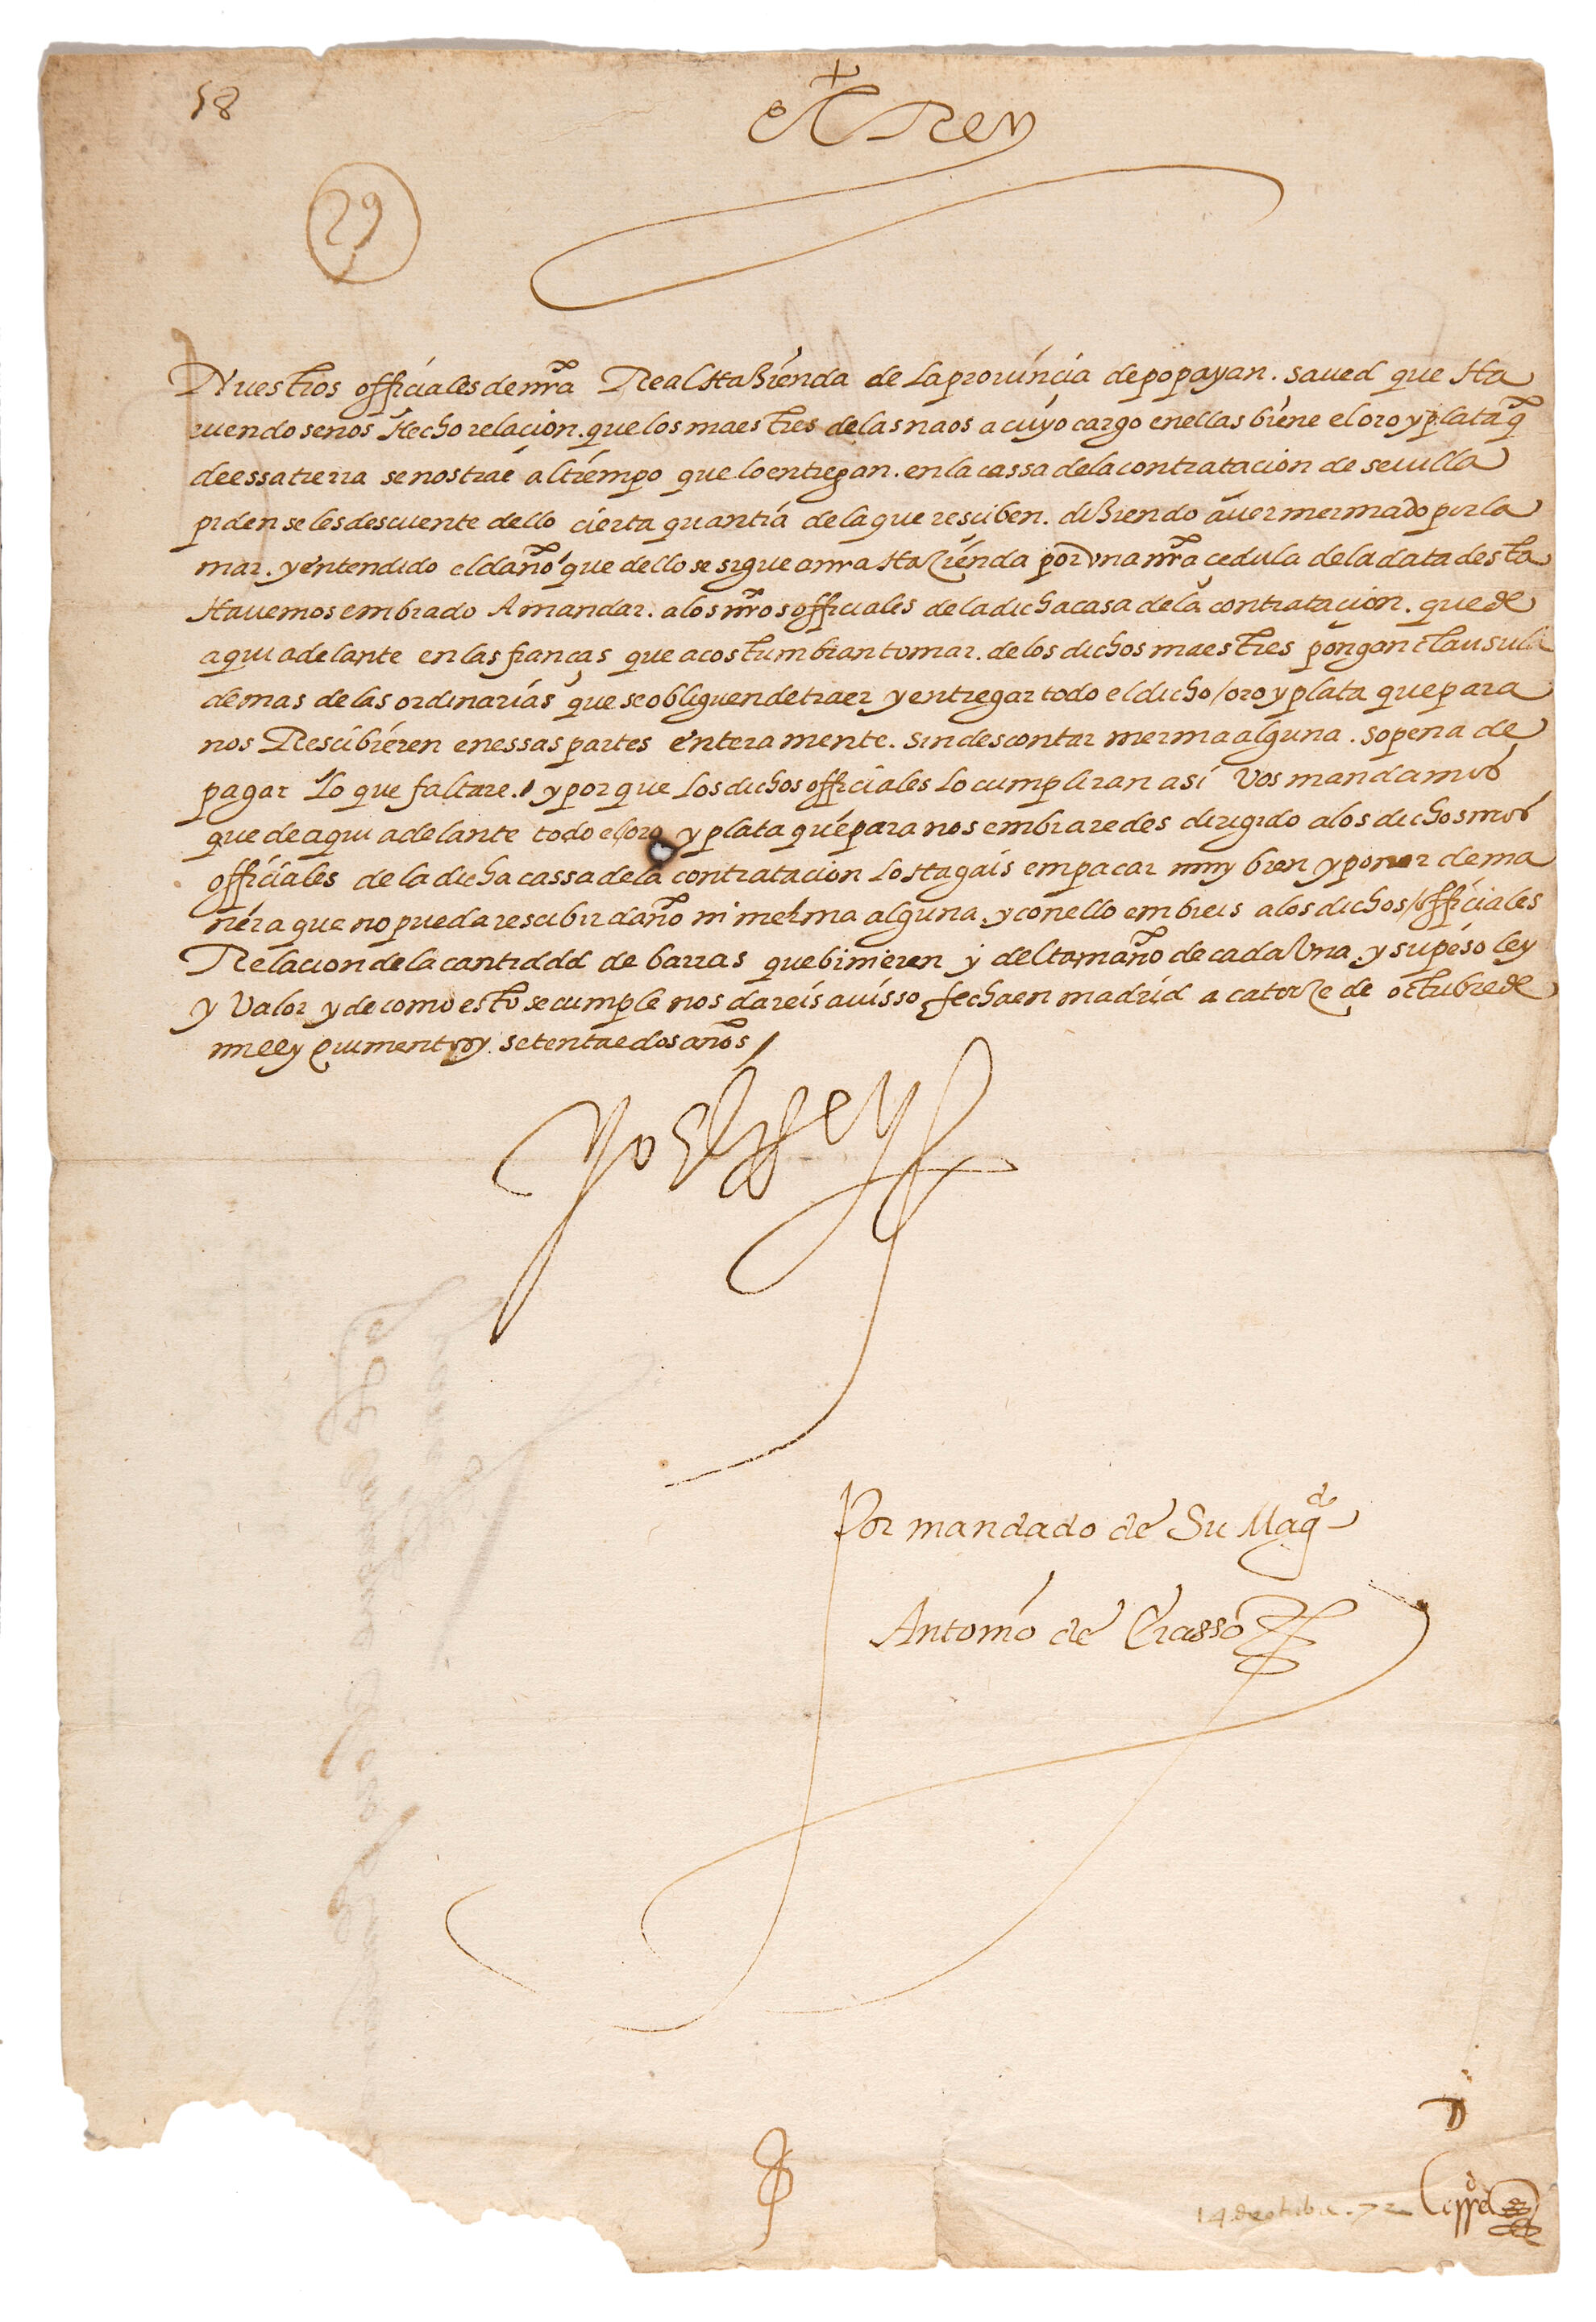 58
el Rey
29
Nuestros officiales de nra Real Hazienda de la prouincia de popayan. saued que Ha
uiendosenos Hecho relacion. que los maestres de las naos a cuyo cargo en ellas biene el oro y plata q
de essa tierra se nos trae al tiempo que lo entregan. en la cassa de la contratacion de seuilla
piden se les descuente dello cierta quantia de la que resciben. diziendo auer mermado por la
mar. y entendido el daño que dello se sigue a nra Hazienda por vna nra çedula de la data desta
Hauemos embiado A mandar. a los nros officiales de la dicha casa de la contrataçion. que de
aqui adelante en las fianças que acostumbran tomar. de los dichos maestres pongan clausula
demas de las ordinarias que se obliguen de traer y entregar todo el dicho / oro y plata que para
nos Rescibieren en essas partes entera mente. sin descontar merma alguna. so pena de
pagar lo que faltare. / y por que los dichos officiales lo cumpliran asi vos mandamos
que de aqui adelante todo el oro y plata que para nos embiaredes dirigido a los dichos nros
officiales de la dicha cassa de la contratacion lo Hagais empacar muy bien y poner de ma
nera que no pueda rescibir daño ni merma alguna. y con ello embieis a los dichos / officiales
Relacion de la cantidad de barras que binieren y del tamaño de cada vna. y su peso ley
y valor y de como esto se cumple nos dareis auisso fecha en madrid a catorze de octubre de
mill y quinientos y setenta e dos años /
Yo El Rey
Por mandado de Su Magd
Antonio de Erasso
14 de otubre. 72